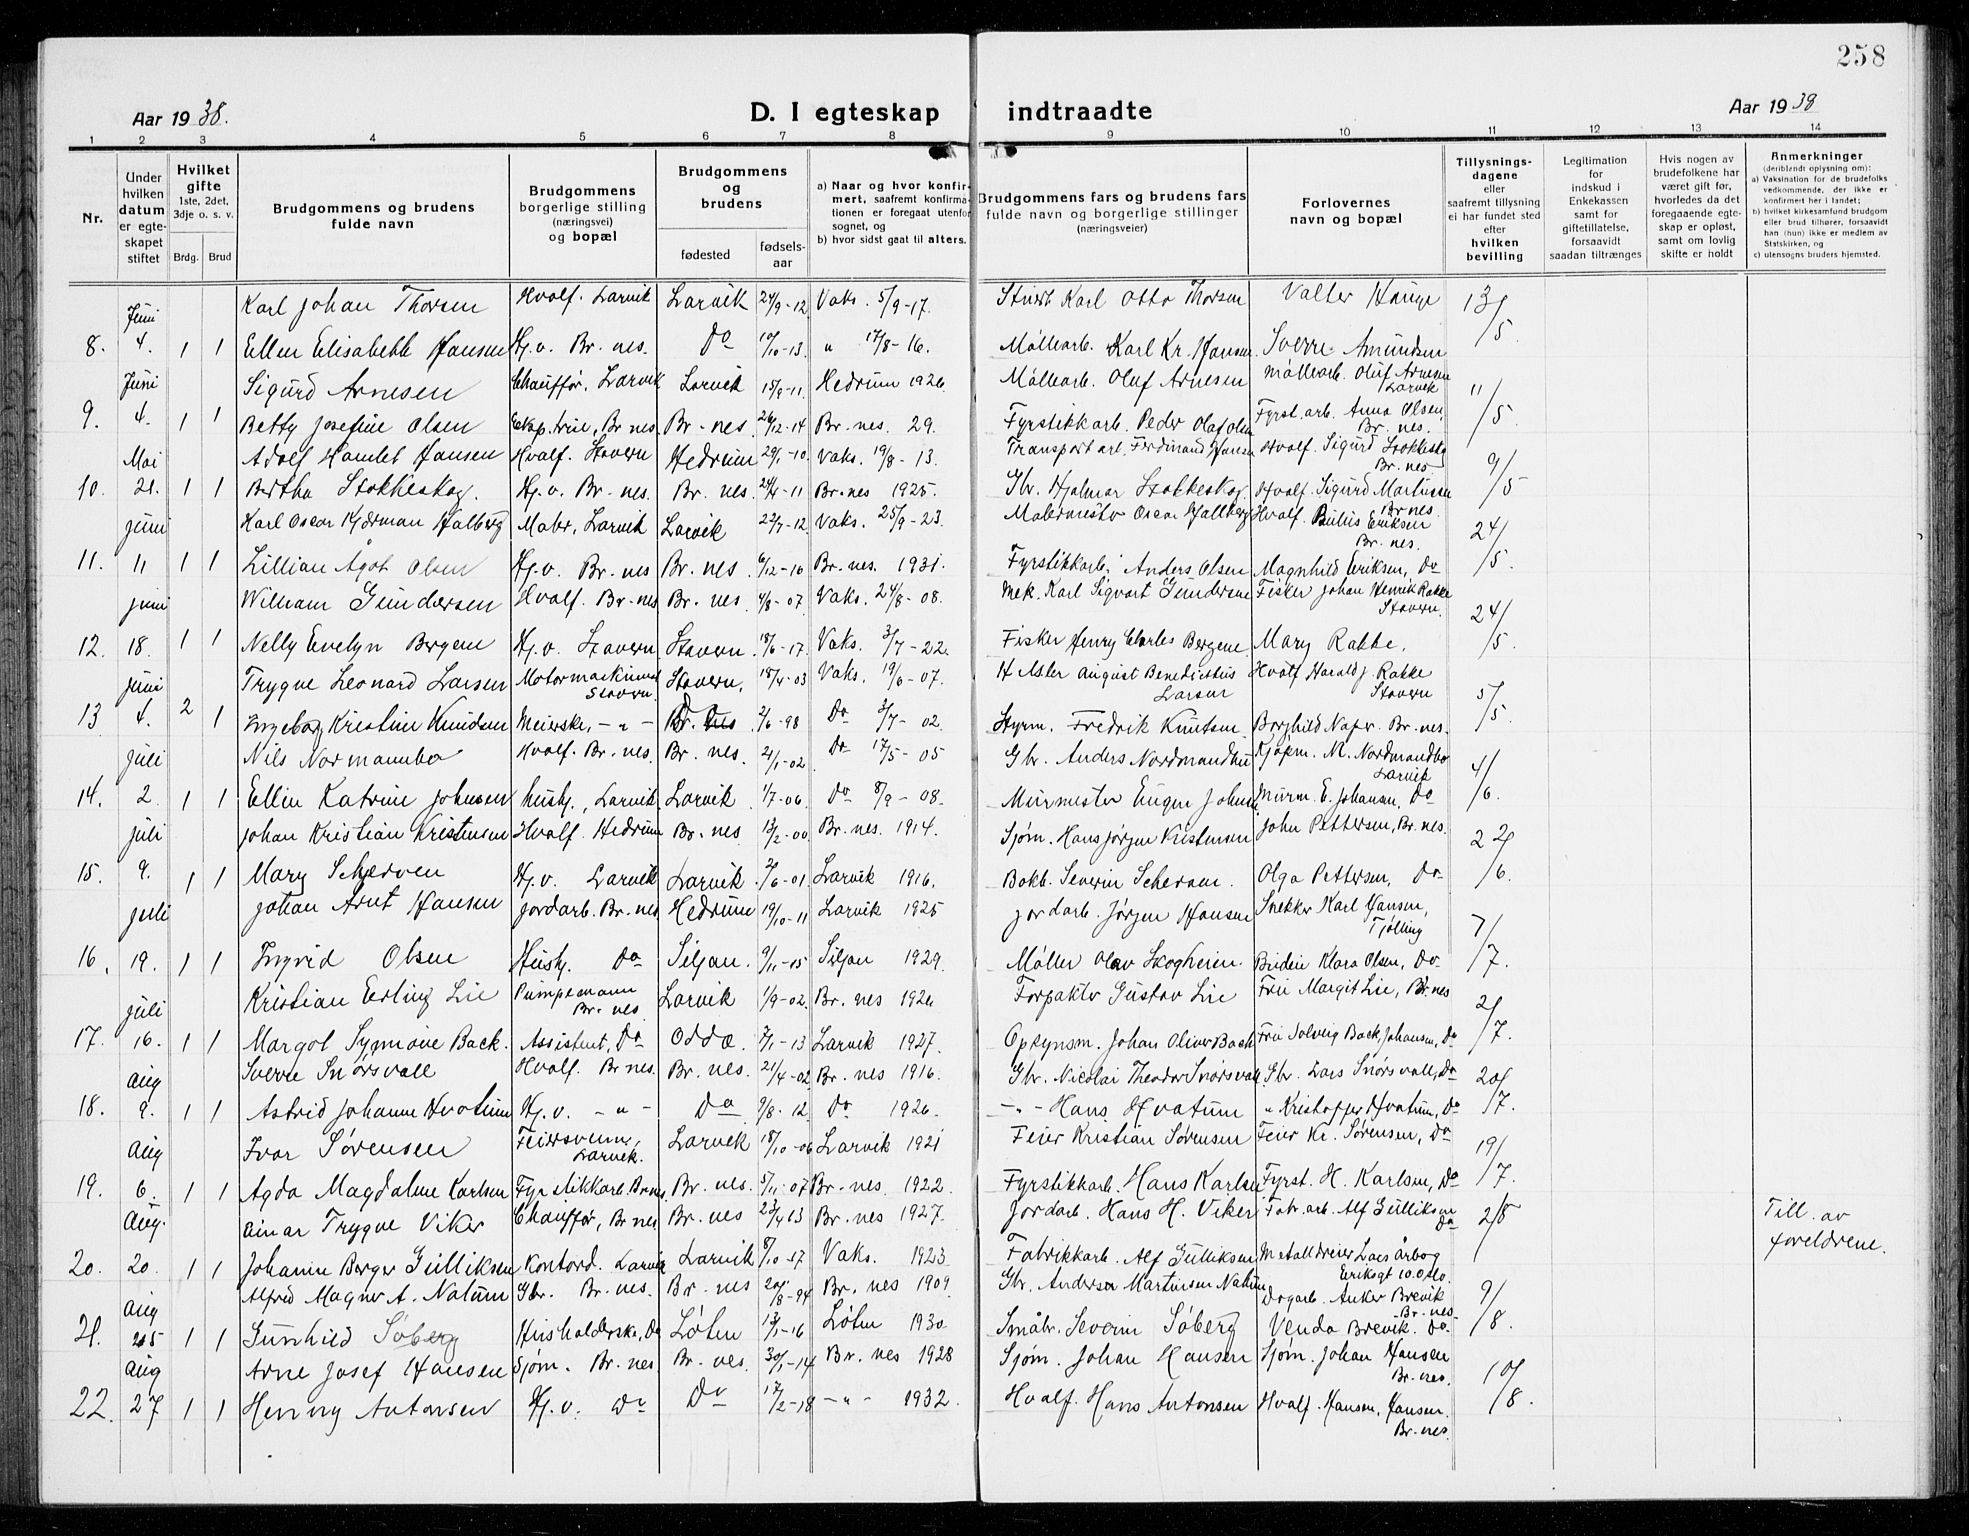 258
Aar 1938. D. I egteskap indtraadte Aar 1938
1 2 3 4 5 6 7 8 9 10 11 12 13 14
Nr.
Under hvilken datum er egteskapet stiftet
Hvilket gifte 1ste, 2det, 3dje o. s. v.
Brdg. Brud
Brudgommens og brudens fulde navn
Brudgommens borgerlige stilling (næringsvei) og bopæl
Brudgommens og brudens
fødested fødselsaar
a) Naar og hvor konfirmert, saafremt konfirmationen er foregaat utenfor sognet, og
b) hvor sidst gaat til alters.
Brudgommens fars og brudens fars fulde navn og borgerlige stillinger (næringsveier)
Forlovernes navn og bopæl
Tillysningsdagene eller saafremt tillysning ei har fundet sted efter hvilken bevilling
Legitimation for indskud i Enkekassen samt for giftetillatelse, forsaavidt saadan tiltrænges
Hvis nogen av brudefolkene har været gift før, hvorledes da det foregaaende egteskap er opløst, samt om lovlig skifte er holdt
Anmerkninger (deriblandt oplysning om):
a) Vaksination for de brudefolks vedkommende, der ikke er konfirmert her i landet;
b) hvilket kirkesamfund brudgom eller brud tilhører, forsaavidt han (hun) ikke er medlem av Statskirken, og
c) utensogns bruders hjemsted.
Juni Karl Johan Thorsen Hvalf. Larvik Larvik 24/9-12 Vaks. 5/9-17. Karl Otto Thorsen Valter Hauge 13/5
8. 4. 1 1 Ellen Elisabeth Hansen Hj.v. Br.nes. Do 10/10-13. " 17/8-16. Møllearb. Karl Kr. Hansen Sverre Amundsen
Juni Sigurd Arnesen Chauffør, Larvik Larvik 15/9-11 Hedrum 1926 Møllearb. Oluf Arnesen Møllearb. Oluf Arnesen Larvik 11/5
9. 4. 1 1 Betty Josefine Olsen Br.nes Br.nes. 26/12-14 Br.nes. 29. Fyrstikkarb. Peder Olaf Olsen Fyrst.arb. Anna Olsen Br.nes.
Mai Adolf Hamlet Hansen Hvalf. Stavern Hedrum 29/1-10. Vaks. 19/8-13. Transportarb. Ferdinand Hansen Hvalf. Sigurd Stokkeskog Br.nes 9/5
10. 21. 1 1 Bertha Stokkeskog. Hj.v. Br.nes. Br.nes. 24/4-11 Br.nes 1925. Gbr. Hjalmar Stokkeskog Hvalf. Sigurd Martinsen Br.nes.
Juni Karl Oscar Hjerman Halberg Maler, Larvik Larvik 22/7-12. Vaks. 25/9-23. Malermester Oscar Hallberg Hvalf. Julius Eriksen Br.nes. 24/5
11. 11 1 1 Lillian Ågot Olsen Hj.v. Br.nes Br.nes. 6/12-16 Br.nes. 1931. Fyrstikkarb. Anders Olsen Magnhild Eriksen, Do
Juni William Gundersen Hvalf. Br.nes Br.nes. 4/8-07 Vaks. 24/8-08. Mek. Karl Sigvart Gundersen Fisker Johan Henrik Rakke Stavern. 24/5
12. 18. 1 1 Nelly Evelyn Bergene Hj.v. Stavern Stavern. 18/6-17. Vaks. 3/7-22. Fisker Henry Charles Bergene Mary Rakke.
Juni Trygve Leonard Larsen Motormaskinist Stavern Stavern. 18/4-03 Vaks. 19/6-07. August Benedictus Larsen Hvalf Harald J. Rakke Stavern 5/5
13 4. 2 1 Ingeborg Kristine Knudsen Meierske, -"- Do 2/6-98 Do 3/7-02. Styrm. Fredrik Knutsen Borghild Naper. Br.nes.
Juli Nils Normannbo Hvalf. Br.nes. Br.nes. 21/1-02 Do 17/5-05 Gbr. Anders Nordmandbu Kjøpm. M. Nordmandbo Larvik 4/6
14. 2 1 1 Ellen Katrine Johnsen husg., Larvik. Larvik. 1/7-06. Do 8/9-08. Murmester Eugen Johnsen Murm. E. Johansen, Do
Juli Johan Kristian Kristensen Hvalf. Hedrum Br.nes 13/2-00. Br.nes. 1914. Sjøm. Hans Jørgen Kristensen John Pettersen, Br.nes. 22/6.
15. 9. 1 1 Mary Scherven Hj.v. Larvik Larvik. 2/6-01. Larvik 1916. Bokb. Severin Scherven. Olga Pettersen, Do
Juli Johan Arnt Hansen Jordarb. Br.nes Hedrum 19/10-11 Larvik 1925 Jordarb. Jørgen Hansen Snekker Karl Hansen, Tjølling 7/7.
16. 19. 1 1 Ingrid Olsen Hushj. Do Siljan. 9/11-15 Siljan 1929. Møller Olav Skogheim. Klara Olsen, Do
Juli Kristian Erling Lie Pumpemann Br.nes Larvik 1/9-02. Br.nes 1926 Forpakter Gustav Lie Fru Margit Lie, Br.nes 2/7.
17. 16. 1 1 Margot Synnøve Back. Assistent, Do Odda. 7/1-13 Larvik 1927. Opsynsm. Johan Oliver Back Fru Solveig Back Johansen, Do
Aug Sverre Snørsvall Hvalf. Br.nes. Br.nes. 21/4-02. Br.nes 1916. Gbr. Nicolai Theodor Snørsvall Gbr. Lars Snørsvall, Do 20/7.
18. 9. 1 1 Astrid Johanne Hvatum Hj.v. -"- Do 9/8.12 Do 1926. -"- Hans Hvatum " Kristoffer Hvatum, Do
Aug Ivar Sørensen Feiersvenn, Larvik. Larvik 18/10-06 Larvik 1921 Feier Kristian Sørensen Feier Kr. Sørensen, Do 19/7.
19. 6. 1 1 Agda Magdalene Karlsen Fyrstikkarb. Br.nes. Br.nes. 5/11-07 Br.nes. 1922. Fyrstikkarb. Hans Karlsen Fyrst. H. Karlsen, Do
Aug. Einar Trygve Viker Chauffør, Br.nes Br.nes 23/4 13 Br.nes 1927. Jordarb. Hans H. Viker Fabr.arb. Alf Gulliksen Do 2/8 Till. av foreldrene.
20. 20. 1 1 Johanne Berger Gulliksen Kontord. Larvik Larvik 8/10-17 Vaks. 1923 Fabrikkarb. Alf Gulliksen Metalldreier Lars Årbog Eriksgt 10. Oslo.
Aug Alfred Magner A. Natum Gbr. Br.nes. Br.nes 20/8-94 Br.nes 1909. Gbr. Anderson Martinsen Natum Dagarb. Anker Brevik Br.nes 9/8.
21. 25 1 1 Gunhild Søberg Husholderske, Do Løten 13/1-16 Løten 1930. Småbr. Severin Søberg Venda Brevik. Do.
Aug Arne Josef Hansen Sjøm. Br.nes. Br.nes. 30/1-14 Br.nes 1928 Sjøm. Johan Hansen Sjøm. Johan Hansen Br.nes. 10/8.
22. 27 1 1 Henny Antonsen Hj.v. Do Do 17/2-18 -"- 1932. Hvalf. Hans Antonsen Hvalf. Hansen, Hansen. Br.nes.